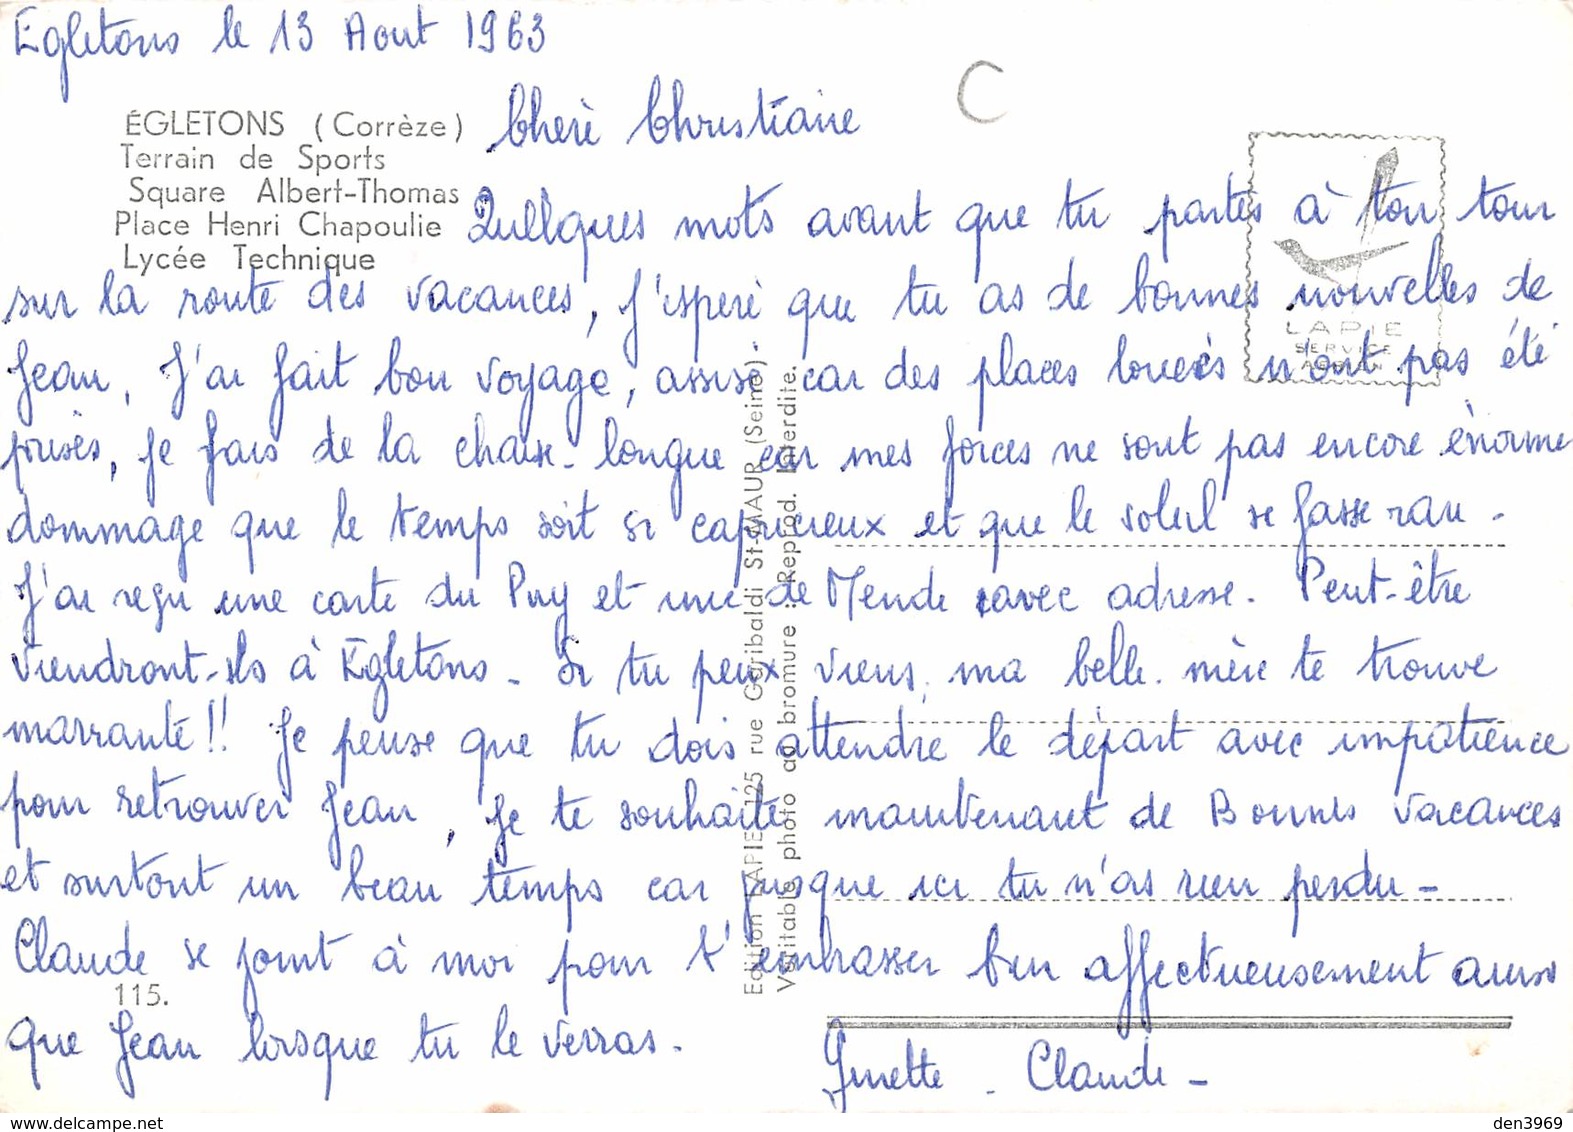 Egletons le 13 Aout 1963
ÉGLETONS (Corrèze)
Terrain de Sports
Square Albert-Thomas
Place Henri Chapoulie
Lycée Technique
C
Chère Christiane
Quelques mots avant que tu partes à ton tour
sur la route des vacances, j'espère que tu as de bonnes nouvelles de
Jean, J'ai fait bon voyage, assise car des places louées n'ont pas été
prises, je fais de la chaise-longue car mes forces ne sont pas encore énorme
dommage que le temps soit si capricieux et que le soleil se fasse rare.
J'ai reçu une carte du Puy et une de Mende avec adresse. Peut-être
viendront-ils à Egletons - Si tu peux viens, ma belle-mère te trouve
marrante!! Je pense que tu dois attendre le départ avec impatience
pour retrouver Jean, je te souhaite maintenant de Bonnes vacances
et surtout un beau temps car jusque ici tu n'as rien perdu -
Claude se joint à moi pour t'embrasser bien affectueusement ainsi
que Jean lorsque tu le verras.
Ginette - Claude -
115.
Edition LAPIE 125 rue Garibaldi St-MAUR (Seine)
Véritable photo au bromure : Reprod. Interdite.
LAPIE
SERVICE
den3969